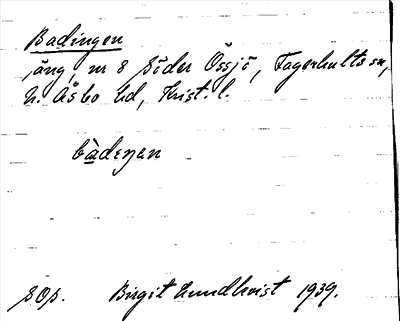 Badingen
, äng, nr 8 Söder Össjö, Fagerhults sn,
N. Åsbo hd, Krist. l.
bàdeŋen
SOp. Birgit Lundkvist 1939.